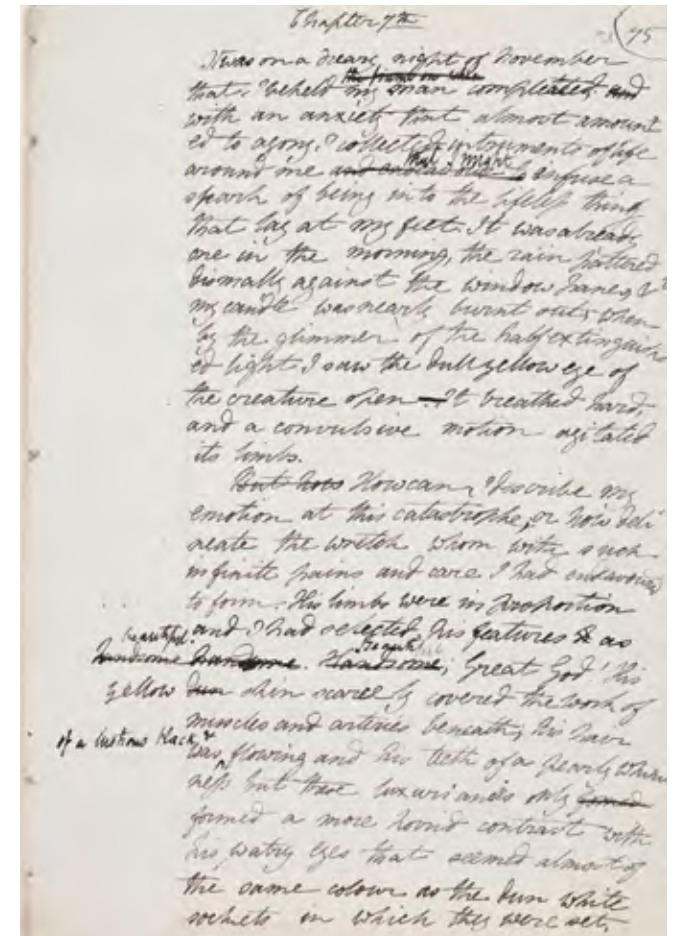 Chapter 7th
75
It was on a dreary night of November
the frame on whic
that I beheld my man compleated and
with an anxiety that almost amount
ed to agony I collected instruments of life
that I might
around me and endeavour to infuse a
spark of being into the lifeless thing
that lay at my feet. It was already
one in the morning, the rain pattered
dismally against the window panes, &
my candle was nearly burnt out, when
by the glimmer of the half extinguish
ed light I saw the dull yellow eye of
the creature open — It breathed hard,
and a convulsive motion agitated
its limbs.
But how How can I describe my
emotion at this catastrophe, or how deli
neate the wretch whom with such
infinite pains and care I had endeavoured
to form. His limbs were in proportion
and I had selected his features & as
beautiful
handsome handsome. Handsome; Great God! His
yellow dun skin scarcely covered the work of
muscles and arteries beneath; his hair
of a lustrous black, &
was flowing and his teeth of a pearly white
ness but these luxuriances only formed
formed a more horrid contrast with
his watry eyes that seemed almost of
the same colour as the dun white
sockets in which they were set,